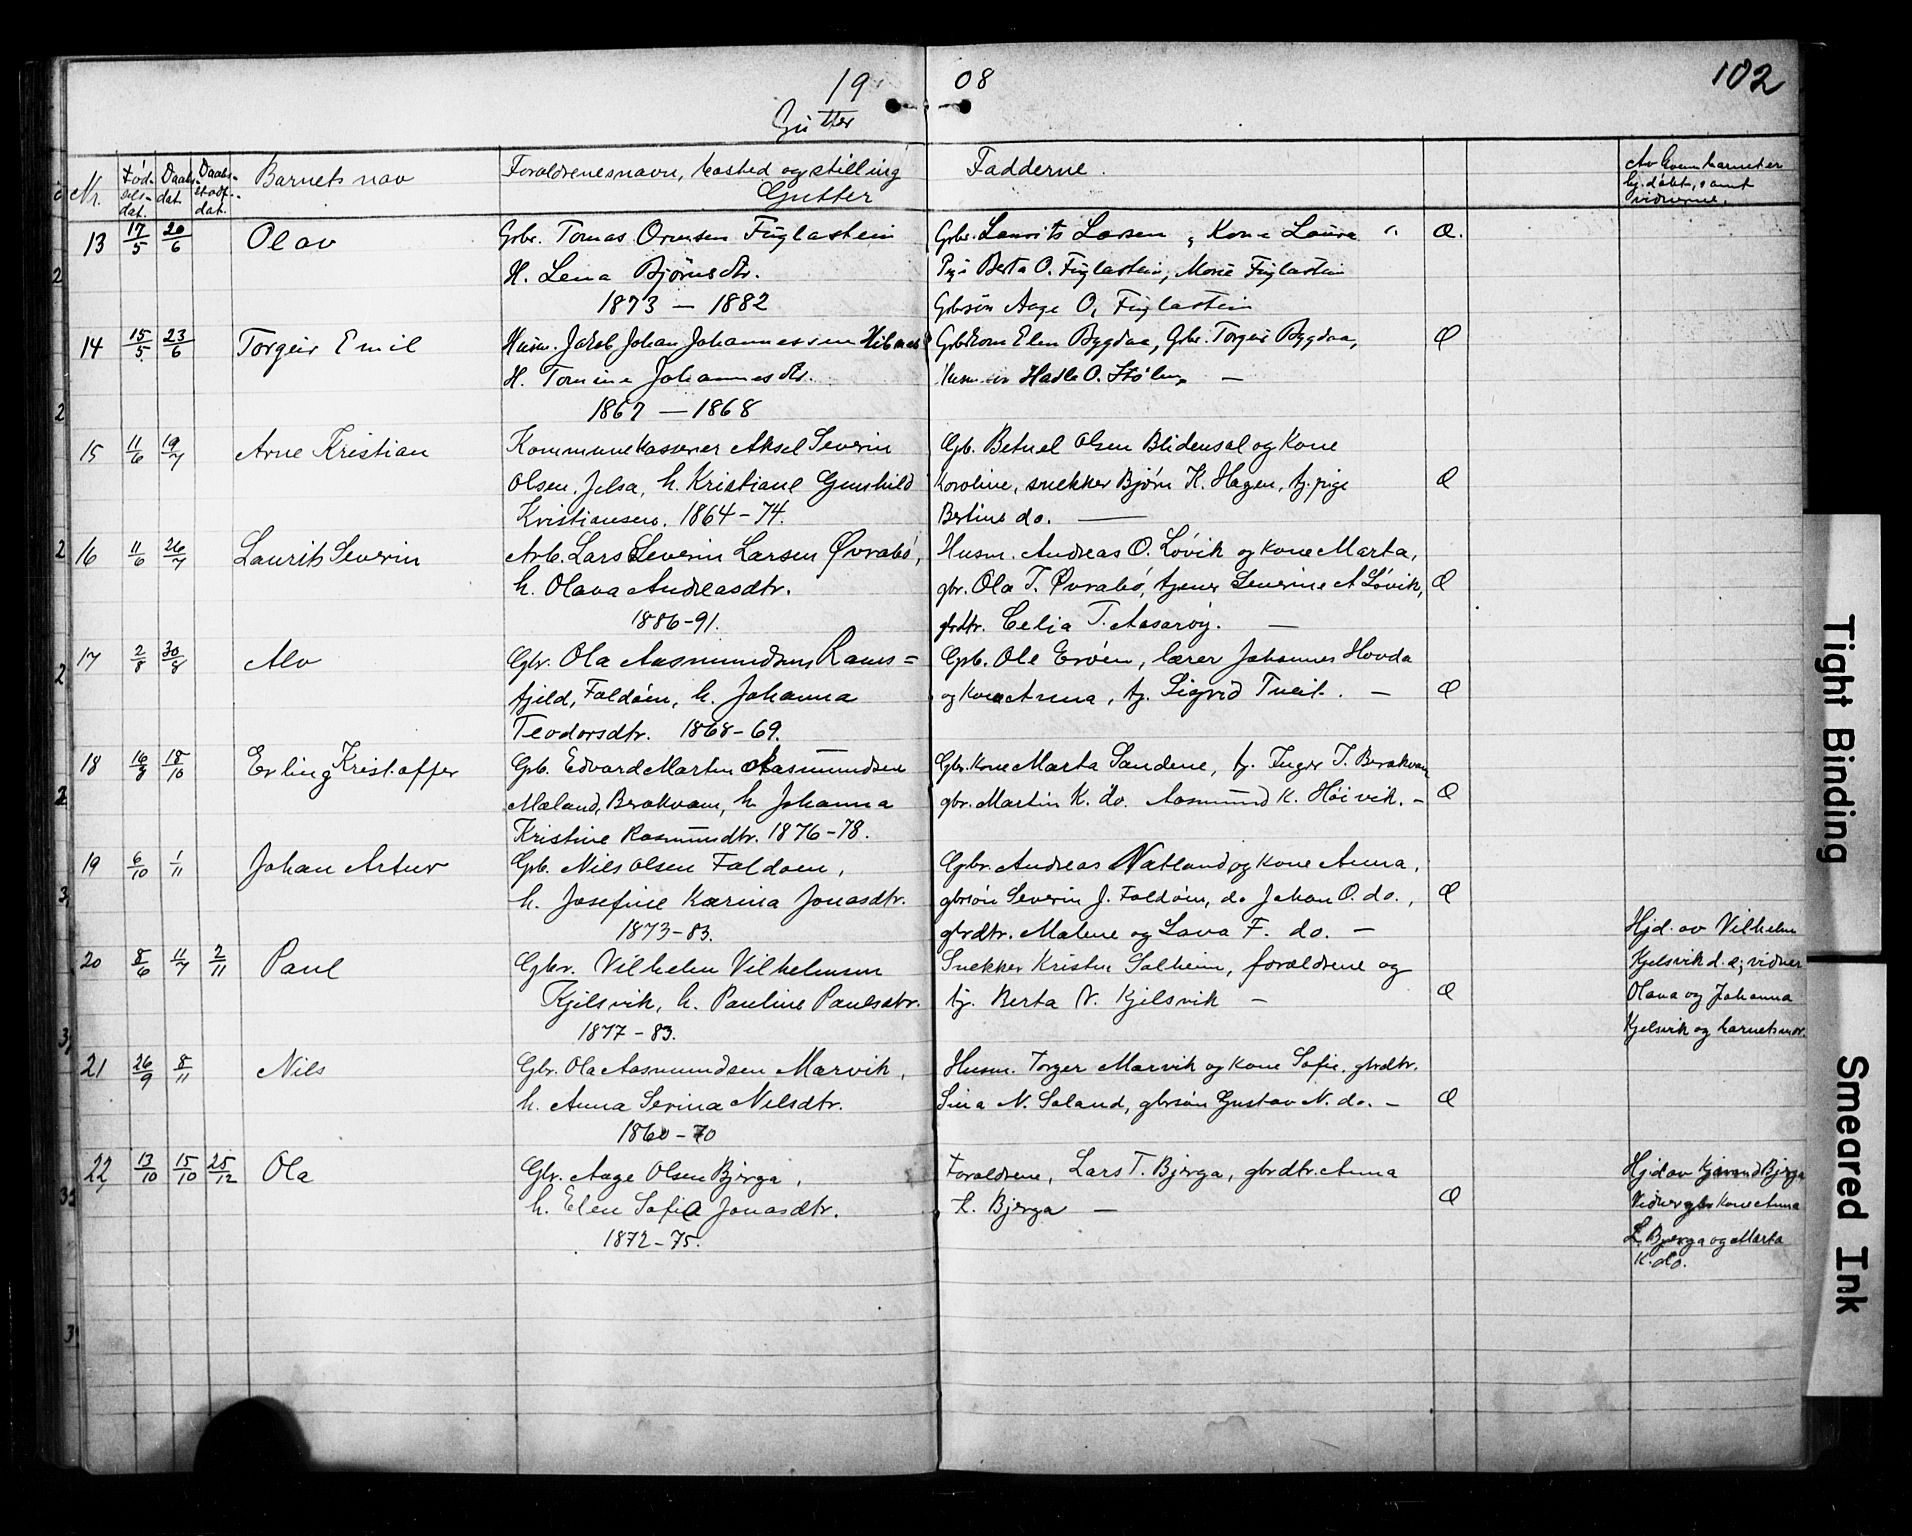 1908
102
Gutter
Nr. Fød-selsdat. Daabs-dat. Daabs-stadf.-dat. Barnets navn Forældrenes navn, bosted og stilling Fadderne. Av hvem barnet er hj.døbt, samt vidnerne.
Gutter
13 17/5 20/6 Olav Gbr. Tomas Ormsen Fuglastein Gbr. Laurits Larsen, Kone Laura " Q.
H. Lena Bjørnsdtr. Pige Berta O. Fuglastein, Marie Fuglastein
1873 — 1882 Gbrsøn Aage O. Fuglastein
14 15/5 23/6 Torgeir Emil Husm. Jakob Johan Johannessen Gbrkone Elen Bygdaa, Gbr. Torgeir Bygdaa, Q
H. Tomine Johannesdtr. Hadle O. Stølen —
1867 — 1868
15 11/6 19/7 Arne Kristian Kommunekasserer Aksel Severin Gb. Betuel Olsen Blidensol og Kone
Olsen, Jelsa, h. Kristiane Gunhild Karoline, snekker Bjørn K. Hagen, tj. pige Q
Kristiansen. 1864-74. Bertine do. —
16 11/6 26/7 Laurits Severin Arb. Lars Severin Larsen Øvrabø, Husm. Andreas O. Løvik og kone Marta,
h. Olava Andreasdtr. gbr. Ola T. Øvrabø, tjener Severine A Løvik, Q
1886-91. gbrdtr. Celia T. Aasarøy. —
17 2/8 30/8 Alv Gbr. Ola Aasmundsen Rams= Gbr. Ole Erøen, lærer Johannes Hovda
fjeld, Foldøen, h. Johanna og kone Anna, tj. Sigrid Tveit. — Q
Teodorsdtr. 1868-69.
18 16/8 18/10 Erling Kristoffer Gb. Edvard Martin Aasmundsen Gbr.kone Marta Sandene, tj. Inger T. Berakvam
Mæland, Berakvam, h. Johanna gbr. Martin K. do. Aasmund K. Høivik. — Q
Kristine Rasmusdtr. 1876-78.
19 6/10 1/11 Johan Artur Gb. Nils Olsen Foldøen, Gbr. Andreas Natland og kone Anna,
h. Josefine Karina Jonasdtr. gbrsøn Severin J. Foldøen, do Johan O. do., Q
1873-83. gbrdtr. Malene og Lava F. do. —
20 8/6 11/7 2/11 Paul Gbr. Vilhelm Vilhelmsen Snekker Kristen Solheim, forældrene og Hjd. av Vilhelm
Kjelsvik, h. Pauline Paulsdtr. tj. Berta V. Kjelsvik — Q Kjelsvik d. e; vidner
1877-83. Olava og Johanna
Kjelsvik og barnets mor.
21 26/9 8/11 Nils Gbr. Ola Aasmundsen Marvik, Husm. Torger Marvik og kone Sofie, gbrdtr.
h. Anna Serina Nilsdtr. Sina N. Saland, gbrsøn Gustav N. do. — Q
1860-70
22 13/10 15/10 25/12 Ola Gbr. Aage Olsen Bjerga, Forældrene, Lars T. Bjerga, gbrdtr. Anna Hjd av Bjerga
h. Elen Sofie Jonasdtr. L. Bjerga — Q Vidner gbr kone Anna
1872-75. L. Bjerga og Marta
K. do.
Tight Binding
Smeared Ink